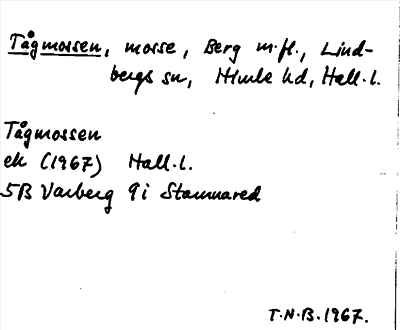 Tågmossen, mosse, Berg m.fl., Lind-
bergs sn, Himle hd, Hall.l.
Tågmossen
ek (1967) Hall.l.
5B Varberg 9i Stamnared
T.N.B. 1967.